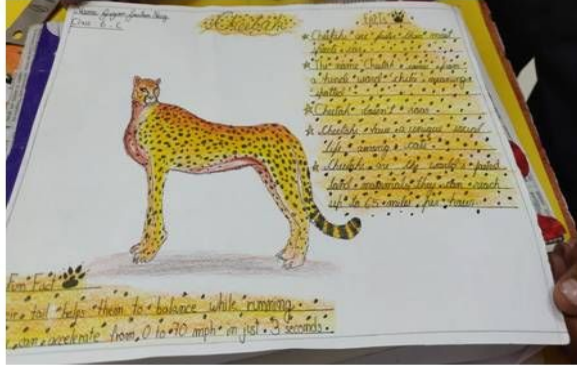 Name
Class 6-C
Cheetah
Facts
Cheetahs are faster than most
The name Cheetah comes from
a hindi word chita meaning
spotted
Cheetah doesn't roar
Cheetahs have a unique social
life among cats
Cheetahs are the world's
land mammals they can reach
up to 65 miles per hour
Fun Fact
tail helps them to balance while running.
can accelerate from 0 to 70 mph in just 3 seconds.